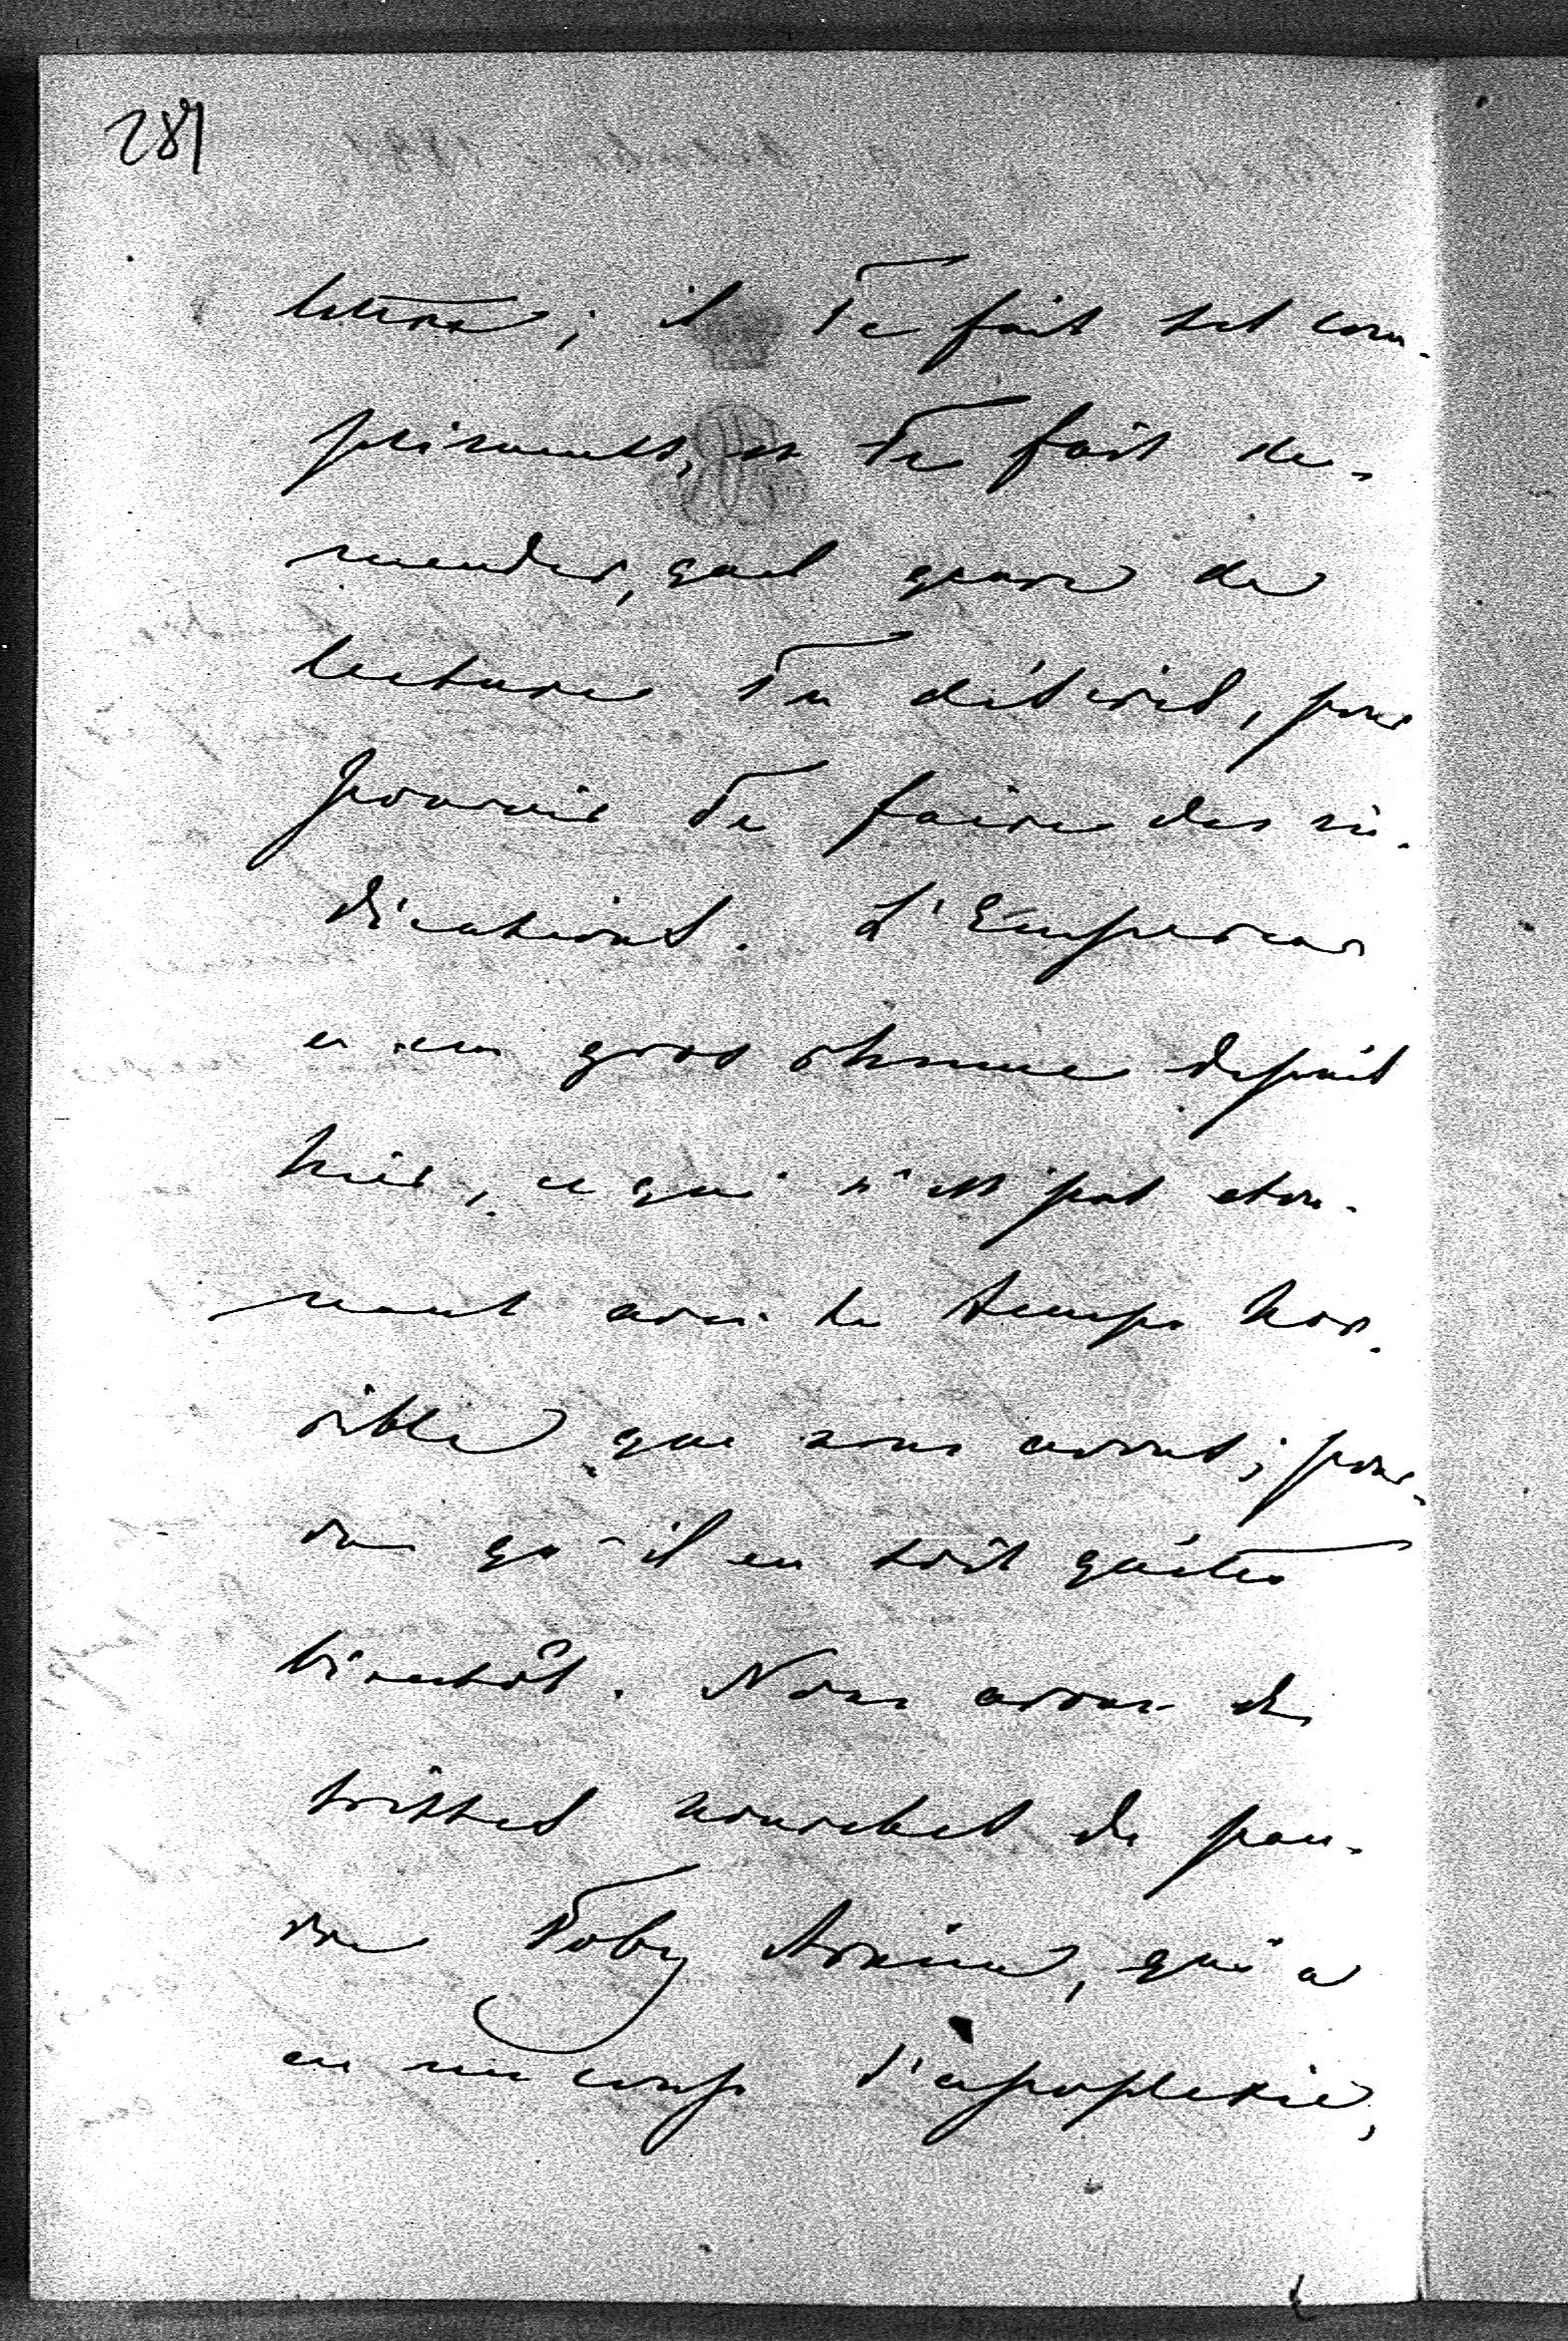 281
lettre; il Te fait ses com-
pliments, et Te fait de-
mander, quel genre de
lecture Tu désires, pour
pouvoir Te faire des in-
dications. L'Empereur
a un gros rhume depuis
hier, ce qui n'est pas eton-
nant avec le temps hor-
rible que nous avons; pour-
vu qu'il en soit quitte
bientôt. Nous avons de
tristes nouvelles du pau-
vre Toby, qui a
eu un coup d'apoplexie,